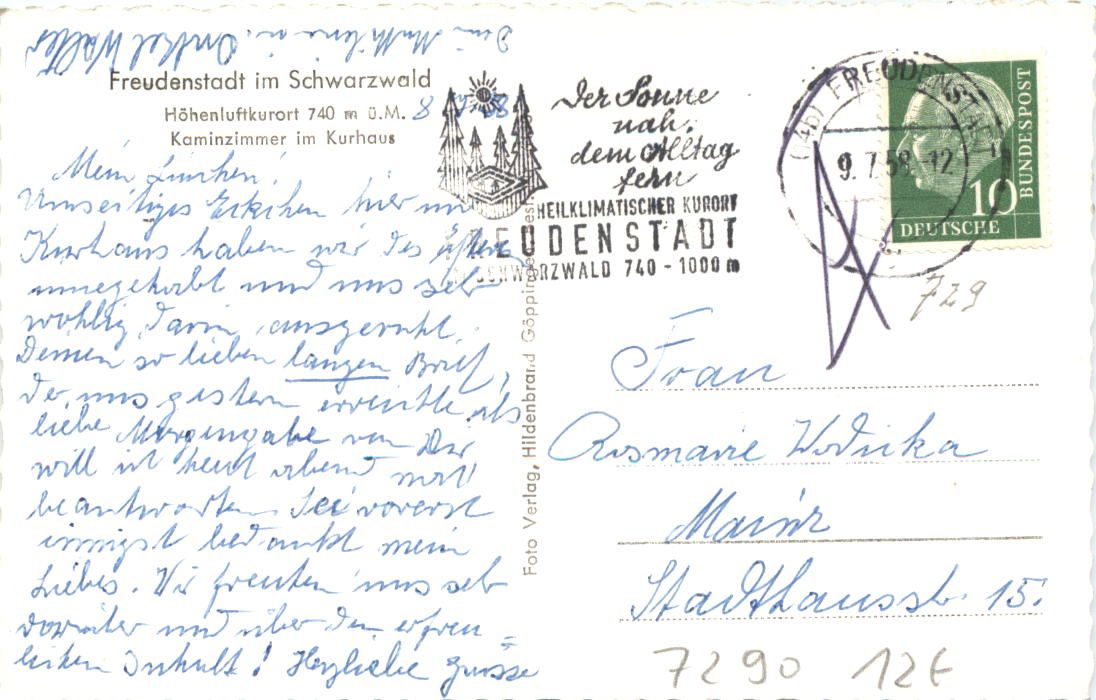 Freudenstadt im Schwarzwald
Höhenluftkurort 740 m ü.M.
Kaminzimmer im Kurhaus
Mein Linchen!
Umseitiges Eckchen hier im
Kurhaus haben wir des öfteren
innegehabt und uns sehr
wohlig darin ausgeruht.
Deinen so lieben langen Brief,
der uns gestern erreichte als
liebe Morgengabe von Dir
will ich heut abend noch
beantworten. Sei vorerst
innigst bedankt mein
Liebes. Wir freuten uns sehr
darüber und über den erfreu=
lichen Inhalt! Herzliebe Grüsse
Onkel Walter
Foto Verlag, Hildenbrand Göppingen
Der Sonne
nah,
dem Alltag
fern
HEILKLIMATISCHER KURORT
FREUDENSTADT
SCHWARZWALD 740-1000 m
(14b) FREUDENSTADT
9.7.58.-12
10
DEUTSCHE
BUNDESPOST
729
Frau
Rosmarie Wodicka
Mainz
Stadthausstr. 15.
7290 12€